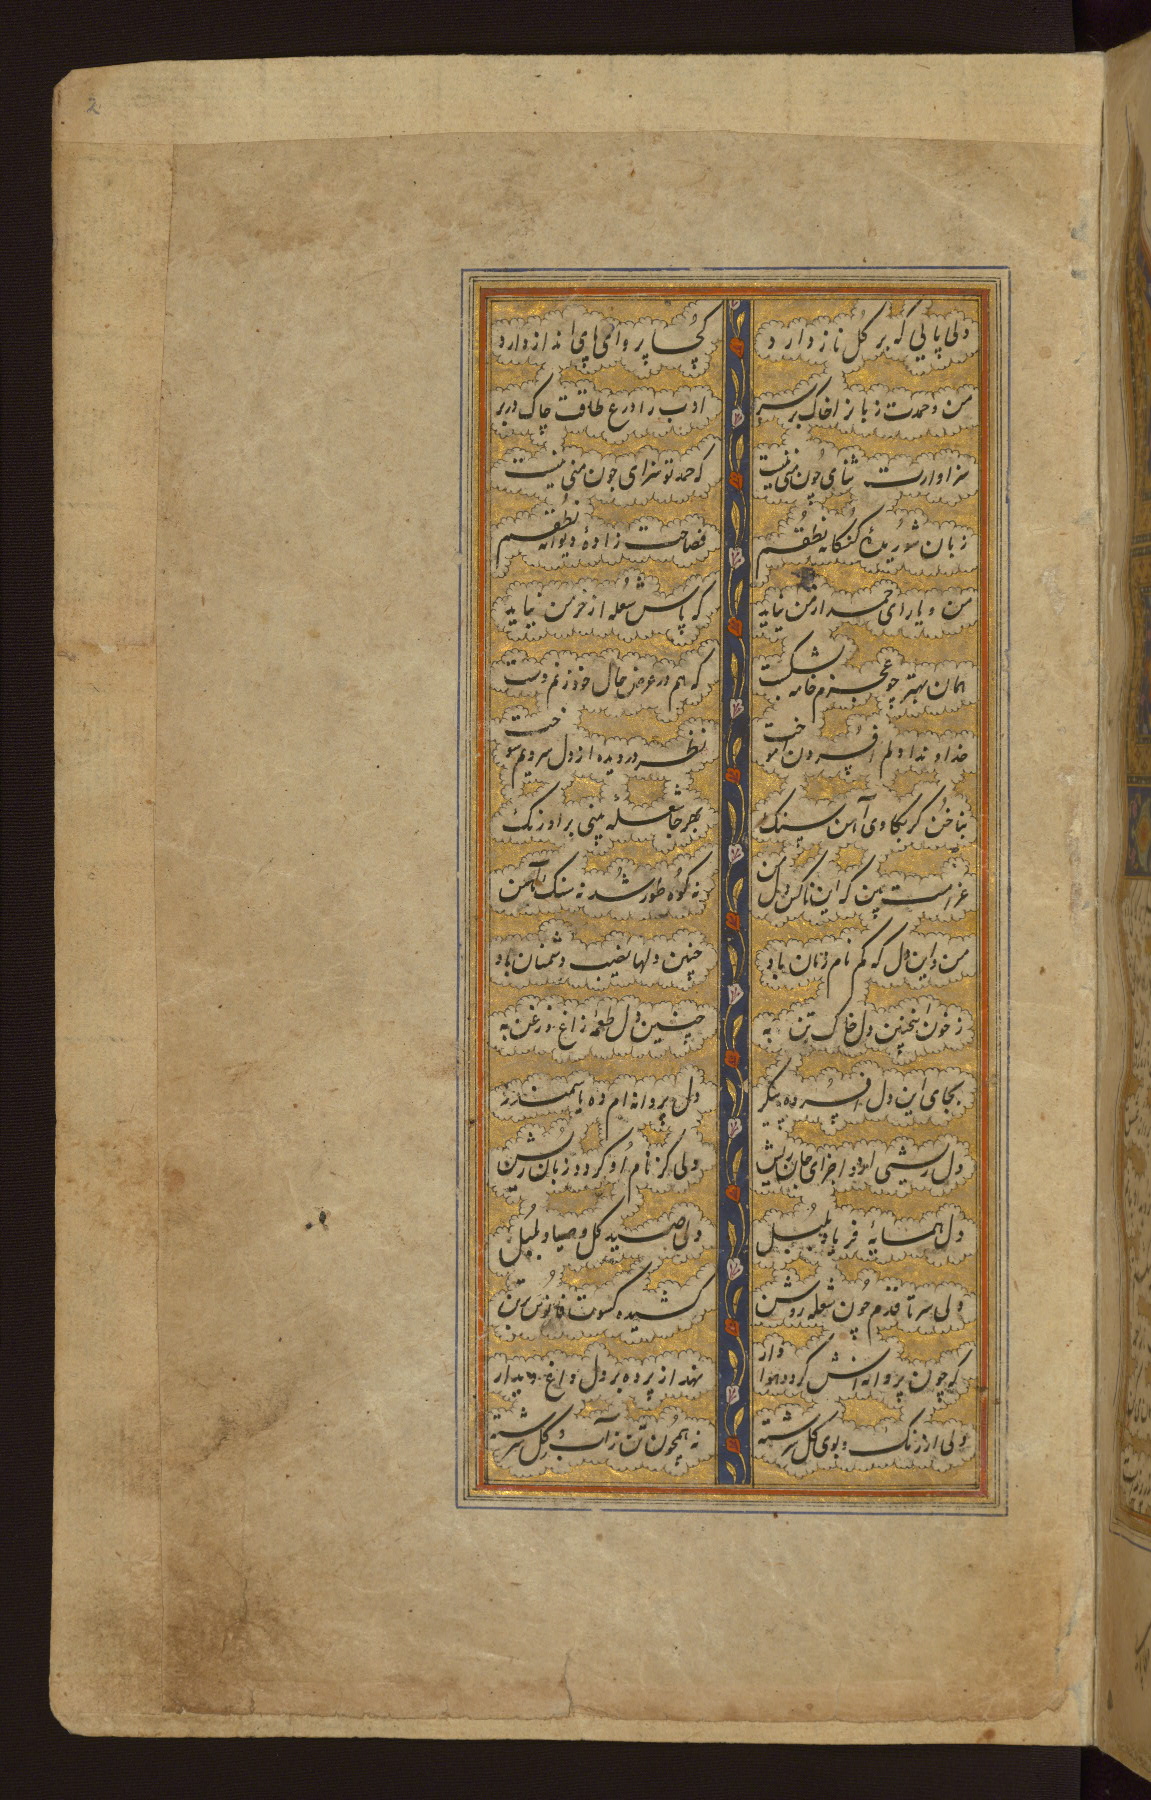 2
ولی پایی که بر گل ناز دارد
کجا پروای پای انداز دارد
من و حمدت زبانرا خاک بر سر
ادب را درع طاقت چاک در بر
سزاوارت ثنای چون منی نیست
که حمد تو سزای چون منی نیست
زبان شوریدهٔ گنگانه نطقم
فصاحت زادهٔ دیوانه نطقم
من و یارای حمد از من نیاید
که پاس شعله از خرمن نیاید
همان بهتر چو عجزم خامه بشکست
که هم در عرض حال خود زنم دست
خداوندا دلم افسردن آموخت
نظر در دیده از دل سردیم سوخت
بناخن گر بکاوی آهن و سنگ
بهر جا شعله بینی براورنگ
غرامت بین که این ناکس دل من
نه کوه طور شد نه سنگ و آهن
من و این دل که کم نام و نشان باد
چنین دلها نصیب دشمنان باد
ز خون اینچنین دل خاک تن به
چنین دل طعمهٔ زاغ و زغن به
بجای این دل افسرده پیکر
دل پروانه‌ام ده یا سمندر
دل ریشی اجزای جان ریش
ولی کز نام او گردد زبان ریش
دل همسایهٔ فریاد بلبل
ولی صید گل و صیاد بلبل
ولی سر تا قدم چون شعله روشن
کشیده کسوت فانوس بر تن
که چون پروانه‌اش گردد هوادار
نهد از پرده بر دل داغ دیدار
ولی از رنگ و بوی گل سرشته
نه همچون تن ز آب و گل سرشته